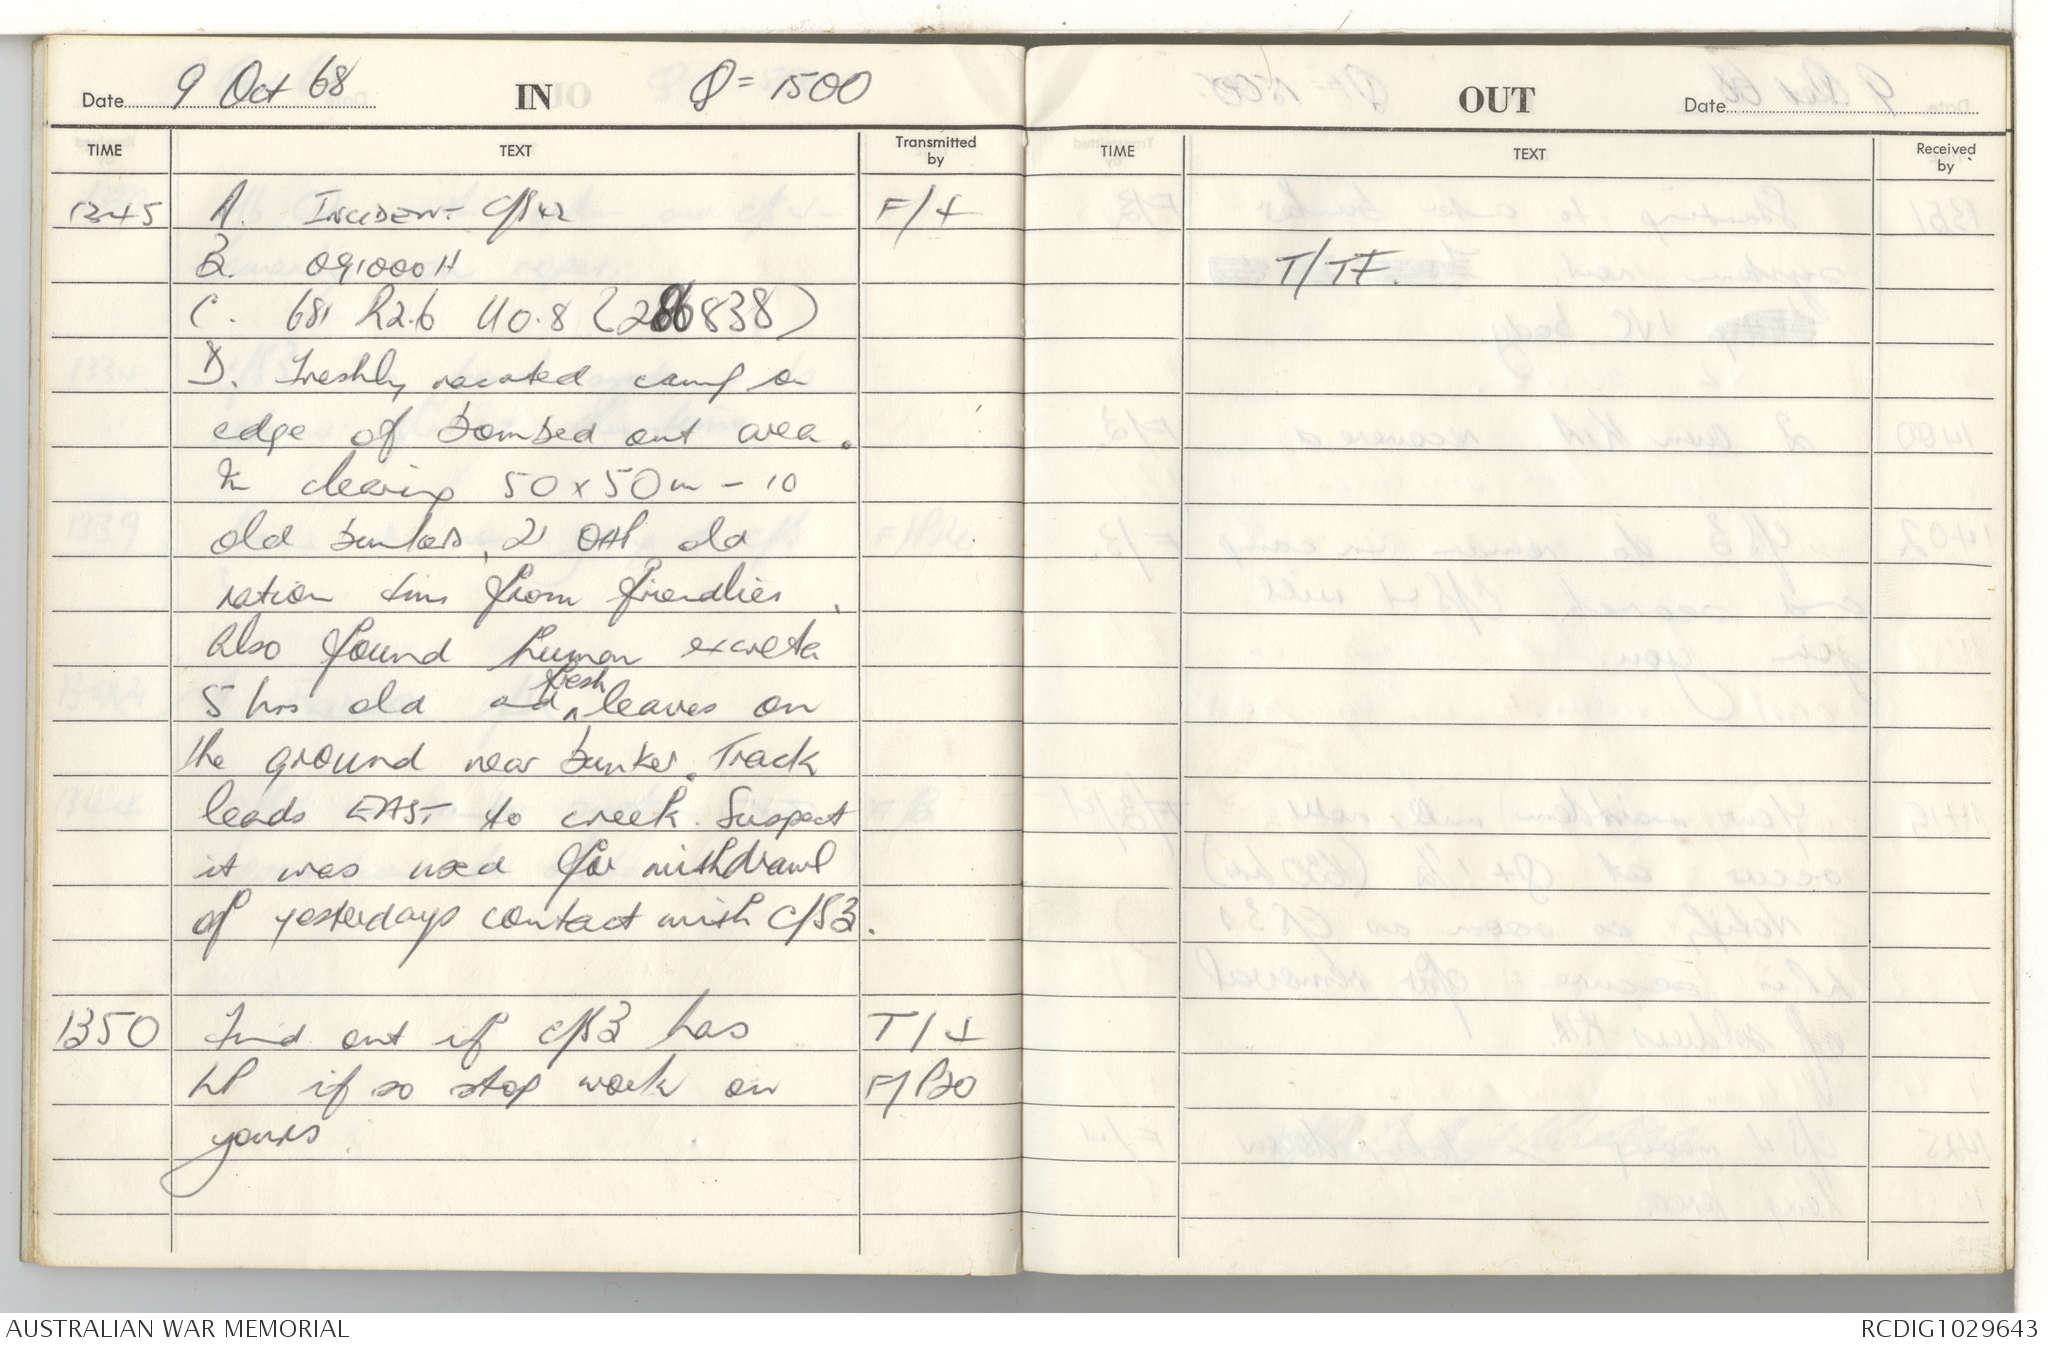 Date 9 Oct 68 IN Q = 1500
TIME TEXT Transmitted by
1345 A. INCIDENT C/S 42 F/4
B. 091000H
C. 681 R2.6 U0.8 (286838)
D. Freshly vacated camp on
edge of bombed out area.
In clearing 50 x 50m - 10
old bunkers, 2 OHP, old
ration tins from friendlies.
Also found human excreta
5 hrs old and fresh leaves on
the ground near bunker. Track
leads EAST to creek. Suspect
it was used for withdrawl
of yesterdays contact with C/S3.
1350 Find out if C/S3 has T/4
LP if so stop work on F/P20
yours.
OUT Date
TIME TEXT Received by
T/TF.
AUSTRALIAN WAR MEMORIAL RCDIG1029643